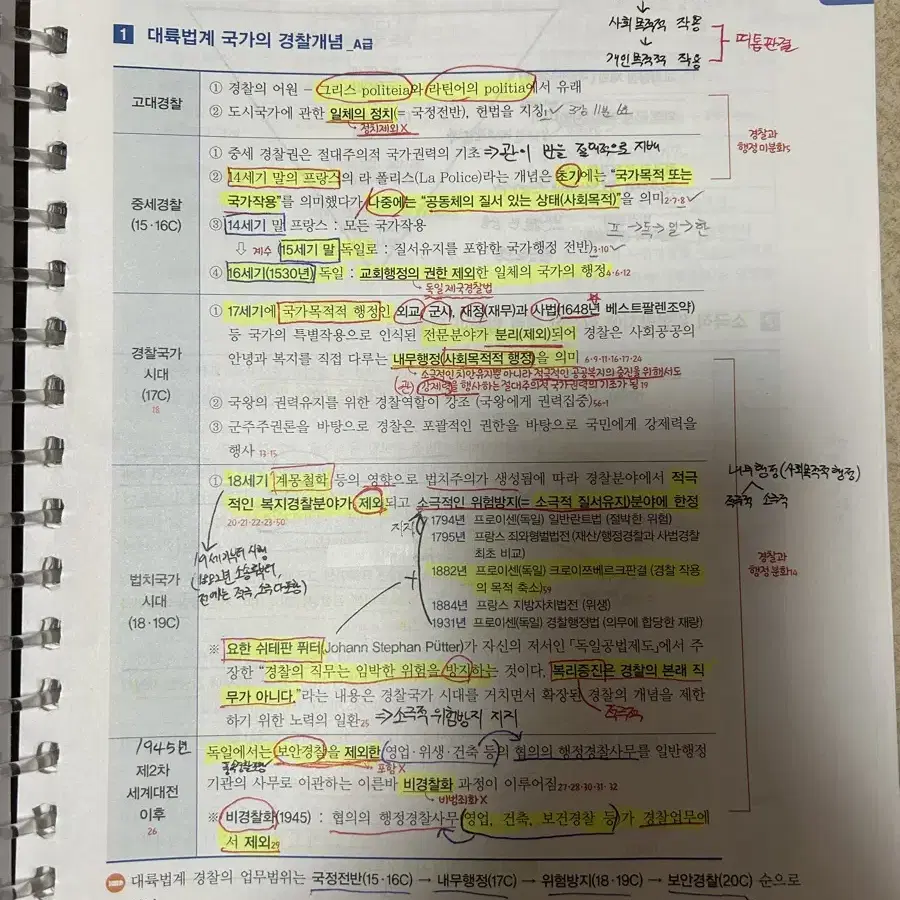 사회목적적 작용
↓
개인목적적 작용
띠톱판결
1 대륙법계 국가의 경찰개념_A급
고대경찰
① 경찰의 어원 – 그리스 politeia와 라틴어의 politia에서 유래
② 도시국가에 관한 일체의 정치(= 국정전반), 헌법을 지칭1
정치제외 X
경찰과
행정 미분화5
중세경찰
(15·16C)
① 중세 경찰권은 절대주의적 국가권력의 기초 ⇒ 관이 민을 절대적으로 지배
② 14세기 말의 프랑스의 라 폴리스(La Police)라는 개념은 초기에는 “국가목적 또는
국가작용”를 의미했다가 나중에는 “공동체의 질서 있는 상태(사회목적)”을 의미2·7·8
③ 14세기 말 프랑스 : 모든 국가작용
프→독→일→한
⇩ 계수 (15세기 말 독일로 : 질서유지를 포함한 국가행정 전반)3·10
④ 16세기(1530년) 독일 : 교회행정의 권한 제외한 일체의 국가의 행정4·6·12
독일 제국경찰법
경찰국가
시대
(17C)
18
① 17세기에 국가목적적 행정인 외교, 군사, 재정(재무)과 사법(1648년 베스트팔렌조약)
등 국가의 특별작용으로 인식된 전문분야가 분리(제외)되어 경찰은 사회공공의
안녕과 복지를 직접 다루는 내무행정(사회목적적 행정)을 의미 6·9·11·16·17·24
소극적인 치안유지뿐 아니라 적극적인 공공복지의 증진을 위해서도
(관) 강제력을 행사하는 절대주의적 국가권력의 기초가 됨19
② 국왕의 권력유지를 위한 경찰역할이 강조 (국왕에게 권력집중)56-1
③ 군주주권론을 바탕으로 경찰은 포괄적인 권한을 바탕으로 국민에게 강제력을
행사 13·15
내무행정(사회목적적 행정)
적극적 소극적
법치국가
시대
(18·19C)
① 18세기 계몽철학 등의 영향으로 법치주의가 생성됨에 따라 경찰분야에서 적극
적인 복지경찰분야가 제외되고 소극적인 위험방지(= 소극적 질서유지)분야에 한정
20·21·22·23·50
지지
1794년 프로이센(독일) 일반란트법 (절박한 위험)
1795년 프랑스 죄와형벌법전 (재산/행정경찰과 사법경찰
최초 비교)
1882년 프로이센(독일) 크로이쯔베르크판결 (경찰 작용
의 목적 축소)59
1884년 프랑스 지방자치법전 (위생)
1931년 프로이센(독일) 경찰행정법 (의무에 합당한 재량)
경찰과
행정 분화14
※ 요한 쉬테판 퓌터(Johann Stephan Pütter)가 자신의 저서인 「독일공법제도」에서 주
장한 “경찰의 직무는 임박한 위험을 방지하는 것이다. 복리증진은 경찰의 본래 직
무가 아니다.”라는 내용은 경찰국가 시대를 거치면서 확장된 경찰의 개념을 제한
하기 위한 노력의 일환25 ⇒ 소극적 위험방지 지지
적극적
1945년
제2차
세계대전
이후
26
독일에서는 보안경찰을 제외한 영업·위생·건축 등의 협의의 행정경찰사무를 일반행정
포함 X
기관의 사무로 이관하는 이른바 비경찰화 과정이 이루어짐27·28·30·31·32
비범죄화 X
※ 비경찰화(1945) : 협의의 행정경찰사무(영업, 건축, 보건경찰 등)가 경찰업무에
서 제외29
대륙법계 경찰의 업무범위는 국정전반(15·16C) → 내무행정(17C) → 위험방지(18·19C) → 보안경찰(20C) 순으로